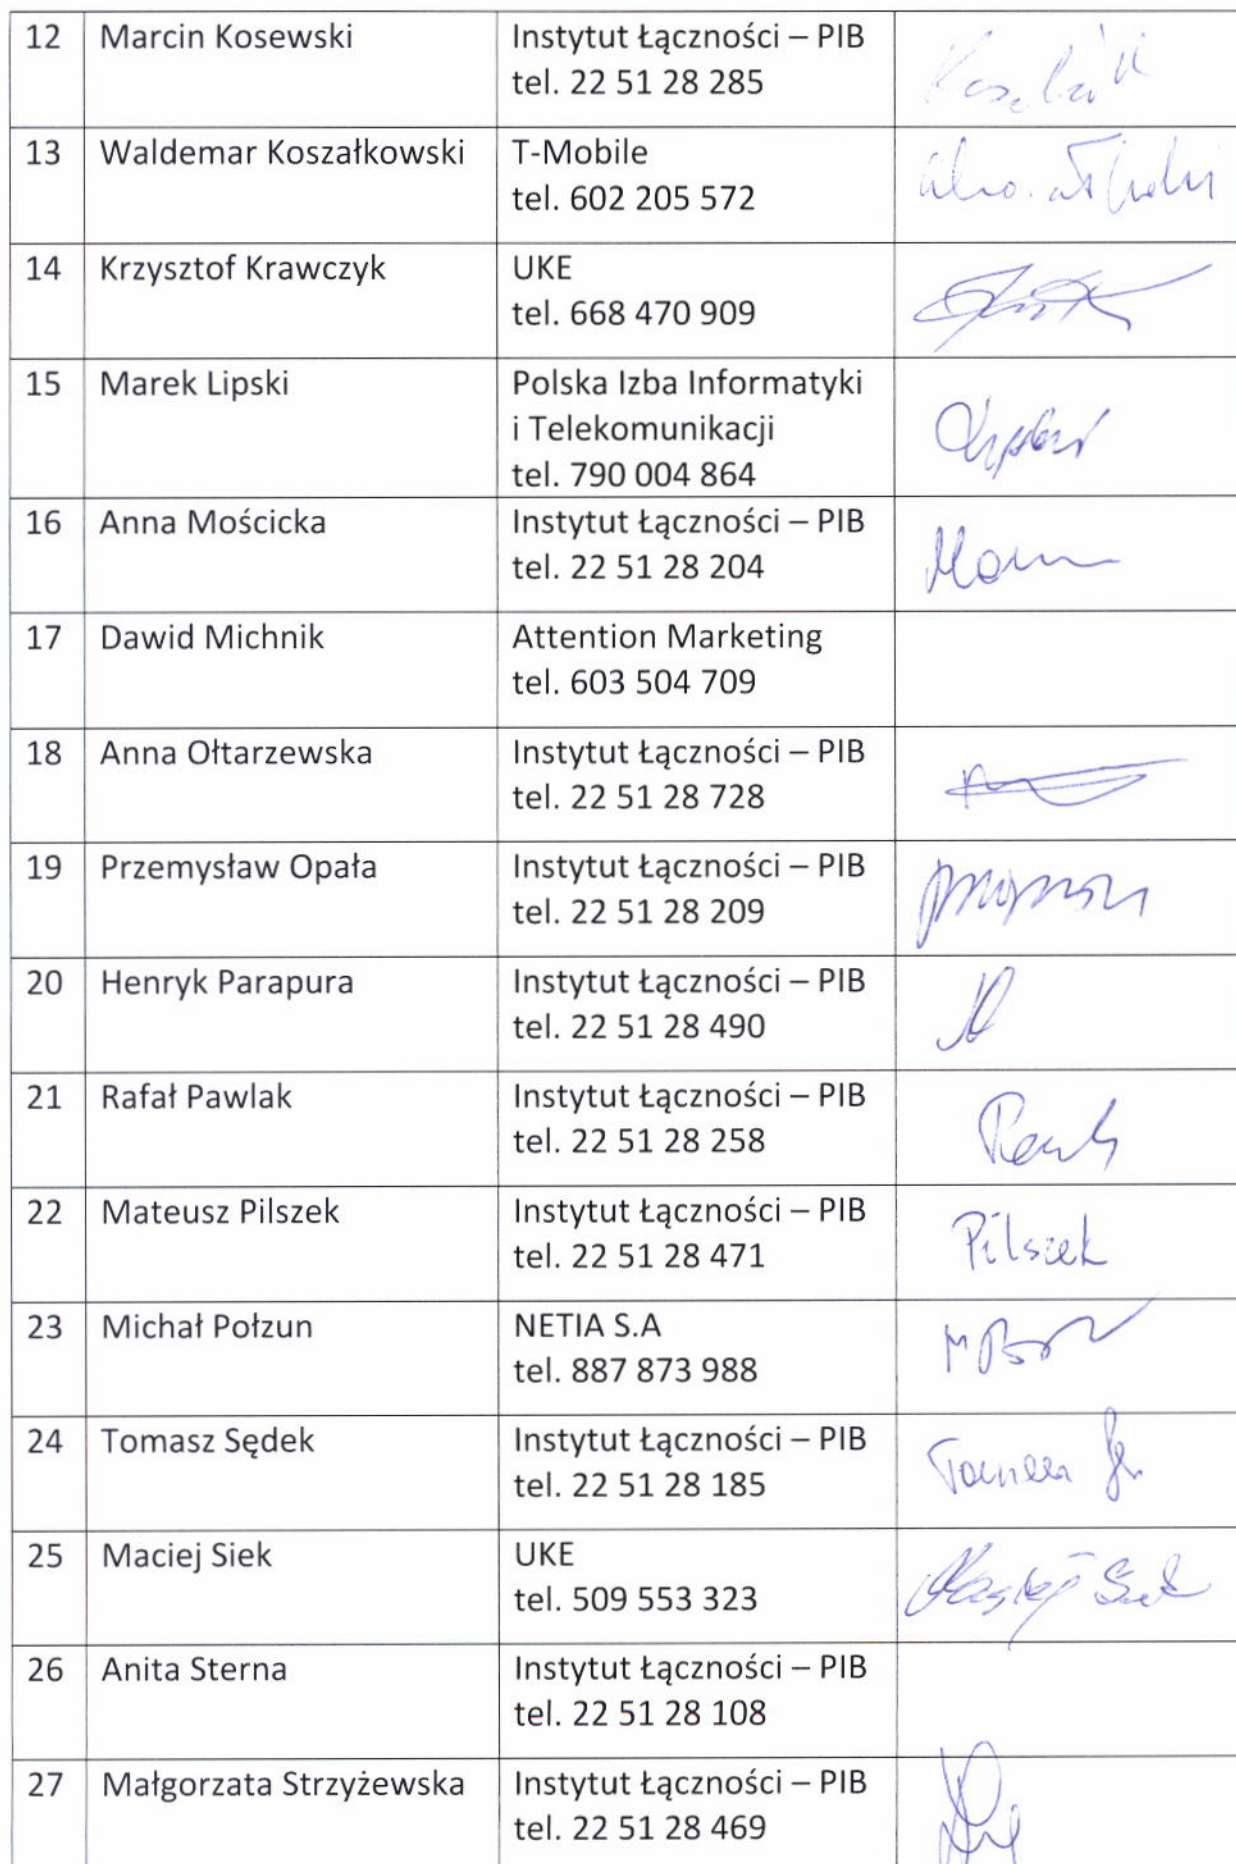 12 Marcin Kosewski Instytut Łączności – PIB
tel. 22 51 28 285
13 Waldemar Koszałkowski T-Mobile
tel. 602 205 572
14 Krzysztof Krawczyk UKE
tel. 668 470 909
15 Marek Lipski Polska Izba Informatyki
i Telekomunikacji
tel. 790 004 864
16 Anna Mościcka Instytut Łączności – PIB
tel. 22 51 28 204
17 Dawid Michnik Attention Marketing
tel. 603 504 709
18 Anna Ołtarzewska Instytut Łączności – PIB
tel. 22 51 28 728
19 Przemysław Opała Instytut Łączności – PIB
tel. 22 51 28 209
20 Henryk Parapura Instytut Łączności – PIB
tel. 22 51 28 490
21 Rafał Pawlak Instytut Łączności – PIB
tel. 22 51 28 258
22 Mateusz Pilszek Instytut Łączności – PIB
tel. 22 51 28 471 Pilszek
23 Michał Połzun NETIA S.A
tel. 887 873 988
24 Tomasz Sędek Instytut Łączności – PIB
tel. 22 51 28 185
25 Maciej Siek UKE
tel. 509 553 323 Maciej Siek
26 Anita Sterna Instytut Łączności – PIB
tel. 22 51 28 108
27 Małgorzata Strzyżewska Instytut Łączności – PIB
tel. 22 51 28 469